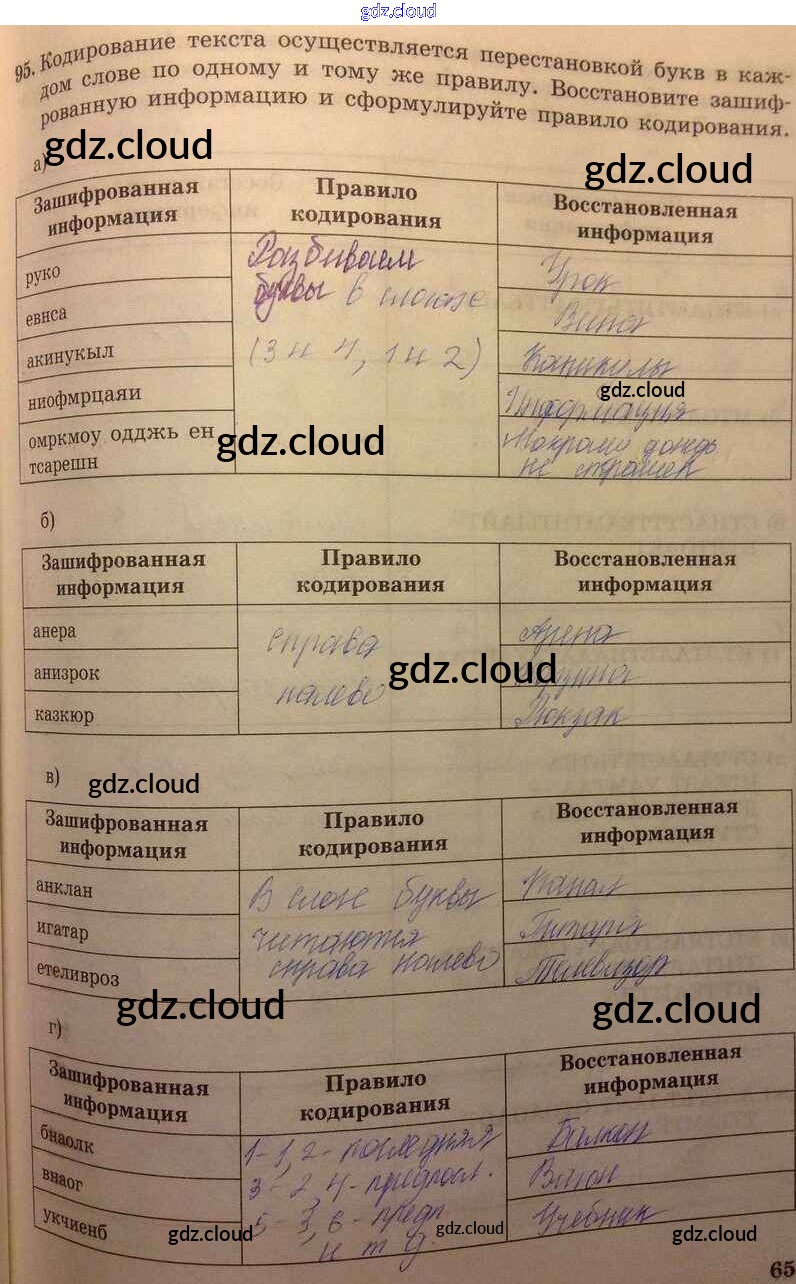 gdz.cloud
95. Кодирование текста осуществляется перестановкой букв в каж-
дом слове по одному и тому же правилу. Восстановите зашиф-
рованную информацию и сформулируйте правило кодирования.
gdz.cloud
gdz.cloud
а)
Зашифрованная информация
Правило кодирования
Восстановленная информация
руко
евнса
акинукыл
ниофмрцаяи
омркмоу одджь ен
тсарешн
Разбиваем
буквы в слоге
(3 и 4, 1 и 2)
Урок
Каникулы
Информация
Мокрому дождь
не страшен
gdz.cloud
gdz.cloud
б)
Зашифрованная информация
Правило кодирования
Восстановленная информация
анера
анизрок
казкюр
справа
налево
Арена
Рюкзак
gdz.cloud
в)
gdz.cloud
Зашифрованная информация
Правило кодирования
Восстановленная информация
анклан
игатар
етеливроз
В слоге буквы
читаются
справа налево
Канал
Гитара
Телевизор
gdz.cloud
gdz.cloud
г)
Зашифрованная информация
Правило кодирования
Восстановленная информация
бнаолк
внаог
укчиенб
1-1, 2- последняя
3-2, 4-предпосл.
5-3, 6- предп
и т д.
Балкон
Учебник
gdz.cloud
gdz.cloud
gdz.cloud
65